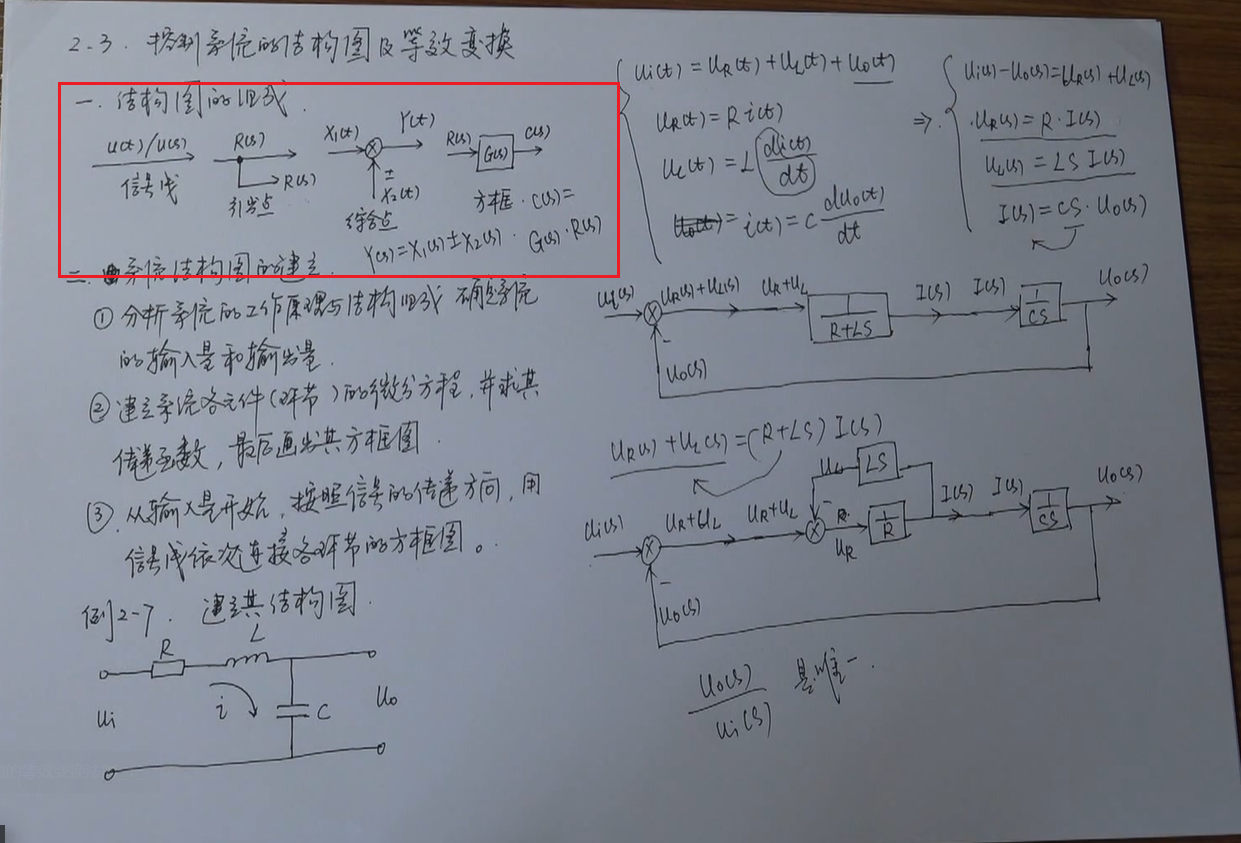 2-3. 控制系统的结构图及等效变换
一. 结构图的组成.
u(t)/u(s)
信号线
R(s)
R(s)
引出点
X₁(t)
Y(t)
±
X₂(t)
综合点
Y(s)=X₁(s)±X₂(s).
R(s)
G(s)
C(s)
方框. C(s)=
G(s)·R(s)
二. 系统结构图的建立.
① 分析系统的工作原理与结构组成 确定系统
的输入量和输出量.
② 建立系统各元件(环节)的微分方程,并求其
传递函数,最后画出其方框图.
③ 从输入量开始,按照信号的传递方向,用
信号线依次连接各环节的方框图。
例2-7. 建立其结构图.
R
L
ui
i
C
uo
ui(t)=uR(t)+uL(t)+uo(t)
uR(t)=Ri(t)
uL(t)=L di(t)/dt
= i(t)=C duo(t)/dt
⇒
ui(s)-uo(s)=uR(s)+uL(s)
uR(s)=R·I(s)
uL(s)=LS I(s)
I(s)=CS·uo(s)
ui(s)
uR(s)+uL(s)
uR+uL
1/(R+LS)
I(s)
I(s)
1/CS
uo(s)
-
uo(s)
uR(s)+uL(s)=(R+LS) I(s)
uL
LS
ui(s)
uR+uL
uR+uL
-
uR
1/R
I(s)
I(s)
1/CS
uo(s)
-
uo(s)
uo(s)/ui(s) 是唯一.